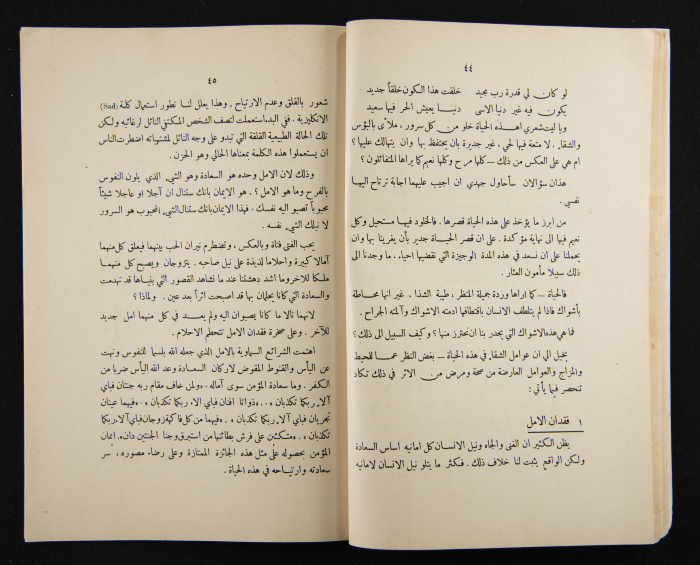 ٤٤
لو كان لي قدرة رب مجيد خلقت هذا الكون خلقاً جديد
يكون فيه غير دنيا الاسى دنيا يعيش الحر فيها سعيد
ويا ليت شعري اهذه الحياة خلو من كل سرور ، ملأى بالبؤس
والشقاء . لا متعة فيها لحي ، غير جديرة بان يحتفظ بها وان يتهالك عليها ؟
ام هي على العكس من ذلك ــ كلها مرح وكلها نعيم كما يراها المتفائلون ؟
هذان سؤالان سأحاول جهدي ان اجيب عليهما اجابة ترتاح اليها
نفسي .
من ابرز ما يؤخذ على هذه الحياة قصرها . فالخلود فيها مستحيل وكل
نعيم فيها الى نهاية مؤكدة . على ان قصر الحياة جدير بأن يغرينا بها وان
يحملنا على ان نسعد في هذه المدة الوجيزة التي نقضيها احياء ، ما وجدنا الى
ذلك سبيلا مأمون العثار .
فالحياة ــ كما اراها وردة جميلة المنظر ، طيبة الشذا ، غير انها محاطة
بأشواك فاذا لم يتلطف الانسان باقتطافها ادمته الاشواك وآلمه الجراح .
فما هي هذه الاشواك التي يجدر بنا ان نحترز منها ؟ وكيف السبيل الى ذلك ؟
يخيل الي ان عوامل الشقاء في هذه الحياة ــ بغض النظر عما للمحيط
والمزاج والعوامل العارضة من صحة ومرض من الاثر في ذلك تكاد
تنحصر فيما يأتي :
١ فقدان الامل
يظن الكثير ان الغنى والجاه ونيل الانسان كل امانيه اساس السعادة
ولكن الواقع يثبت لنا خلاف ذلك . فكثر ما يتلو نيل الانسان لامانيه
٤٥
شعور بالقلق وعدم الارتياح . وهذا يعلل لنا تطور استعمال كلمة (Sad)
الانكليزية . ففي البدء استعملت لتصف الشخص المكتفي النائل لرغائبه ولكن
تلك الحالة الطبيعية القلقة التي تبدو على وجه النائل لمشتهياته اضطرت الناس
ان يستعملوا هذه الكلمة بمعناها الحالي وهو الحزن .
وذلك لان الامل وحده هو السعادة وهو الشيء الذي يلون النفوس
بالفرح وما هو الامل ؟ . هو الايمان بانك ستنال ان آجلا او عاجلا شيئاً
محبوباً تصبو اليه نفسك . فهذا الايمان بانك ستنال الشيء المحبوب هو السرور
لا نيلك الشيء نفسه .
يحب الفتى فتاة وبالعكس ، وتضطرم نيران الحب بينهما فيعلق كل منهما
آمالا كبيرة واحلاما لذيذة على نيل صاحبه . يتزوجان ويصبح كل منهما
ملكا للآخر وما اشد دهشتنا عند ما نشاهد القصور التي بنياها قد تهدمت
والسعادة التي كانا يحلمان بها قد اصبحت اثراً بعد عين . ولماذا ؟
لانهما نالا ما كانا يصبوان اليه ولم يعد في كل منهما امل جديد
للآخر . وعلى صخرة فقدان الامل تتحطم الاحلام .
اهتمت الشرائع السماوية بالامل الذي جعله الله بلسما للنفوس ونهت
عن اليأس والقنوط المقوض لاركان السعادة وعد الله اليأس ضربا من
الكفر . وما سعادة المؤمن سوى آماله . «ولمن خاف مقام ربه جنتان فباي
آلاء ربكما تكذبان » . «ذواتا افنان فباي آلاء ربكما تكذبان » . «فيهما عينان
تجريان فباي آلاء ربكما تكذبان » . «فيهما من كل فاكهة زوجان فباي آلاء ربكما
تكذبان » . «متكئين على فرش بطائنها من استبرق وجنا الجنتين دان» . ايمان
المؤمن بحصوله على مثل هذه الجائزة الممتازة وعلى رضاء مصوره ، سر
سعادته وارتياحه في هذه الحياة .